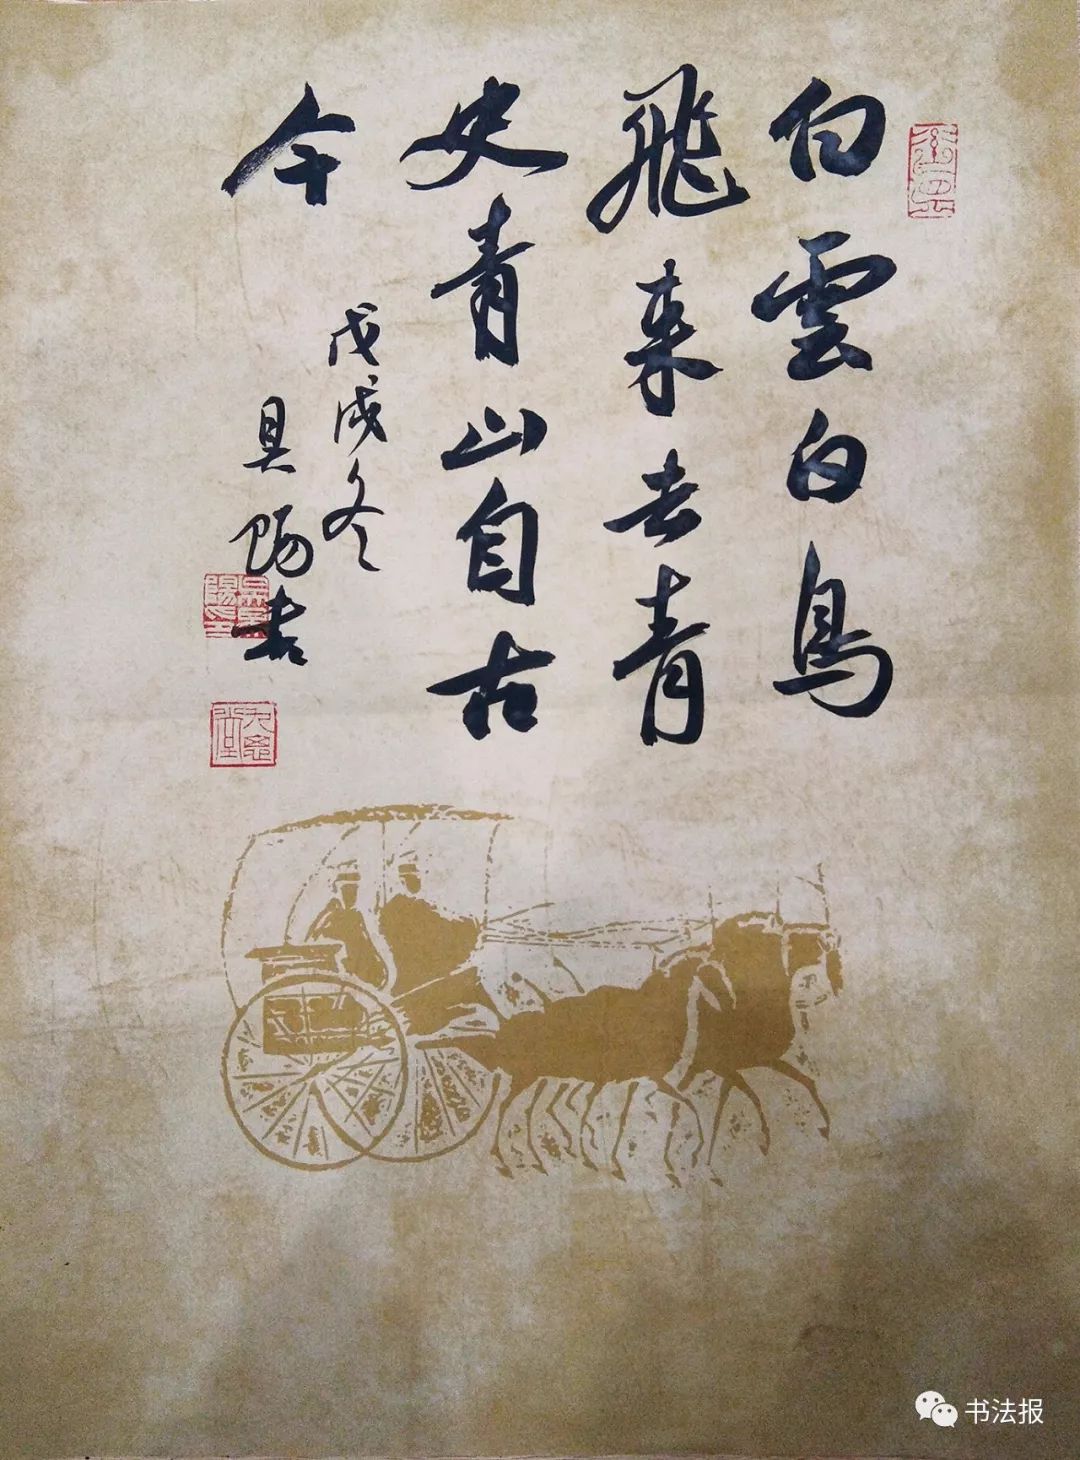 白雲白鳥
飛來去青
史青山自古
今
戊戌冬
書法报